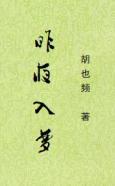 昨夜入梦
胡也频 著